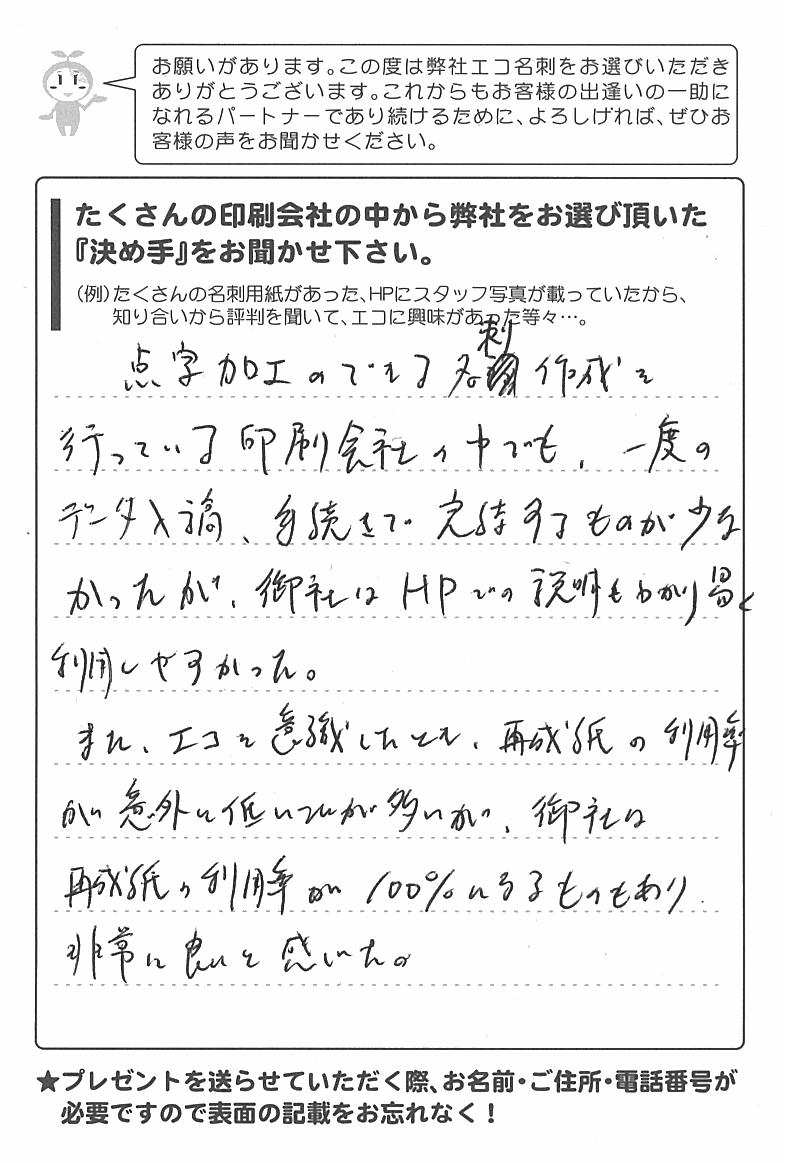 お願いがあります。この度は弊社エコ名刺をお選びいただき
ありがとうございます。これからもお客様の出逢いの一助に
なれるパートナーであり続けるために、よろしければ、ぜひお
客様の声をお聞かせください。
たくさんの印刷会社の中から弊社をお選び頂いた
『決め手』をお聞かせ下さい。
(例)たくさんの名刺用紙があった、HPにスタッフ写真が載っていたから、
知り合いから評判を聞いて、エコに興味があった等々…。
点字加工のできる名刺作成を
行っている印刷会社の中でも、一度の
データ入稿、手続きで完結するものが少な
かったが、御社はHPでの説明もわかり易く
利用しやすかった。
また、エコを意識したとき、再成紙の利用率
が意外と低い が多いが、御社は
再成紙の利用率が100%になるものもあり
非常に良いと感じた。
★プレゼントを送らせていただく際、お名前・ご住所・電話番号が
必要ですので表面の記載をお忘れなく!